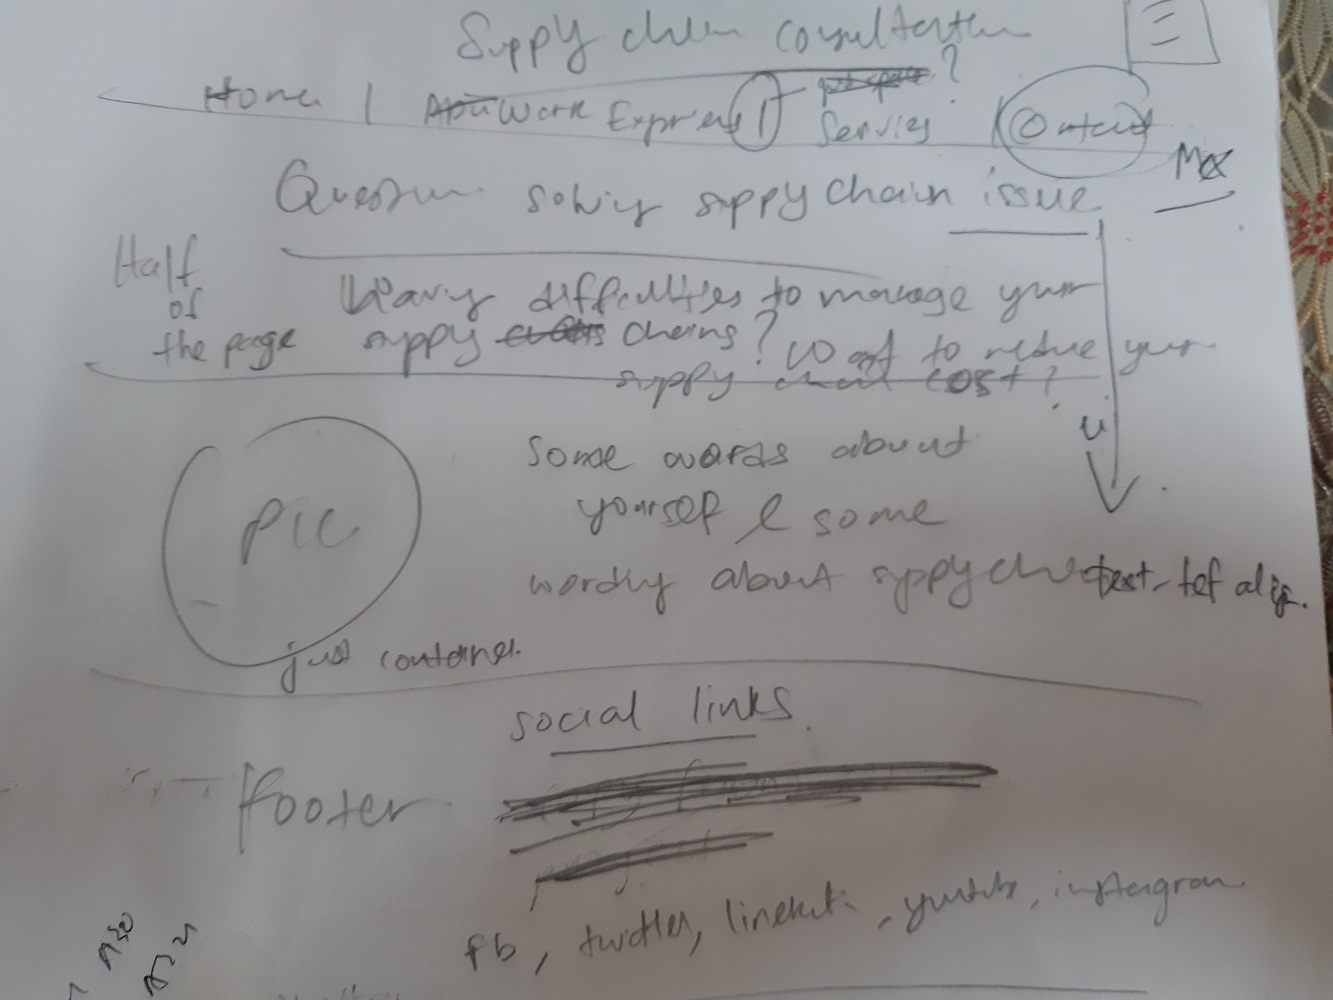 Supply chain consultation
Home | Work Experience | Services ? Contact
Question solving supply chain issue
Max
Half
of
the page
Having difficulties to manage your
supply chains? Want to reduce your
supply chain cost?
PIC
Some words about
yourself & some
wording about supply chain
text-left align.
just container.
social links
footer
fb, twitter, linekdi, youtube, instagram